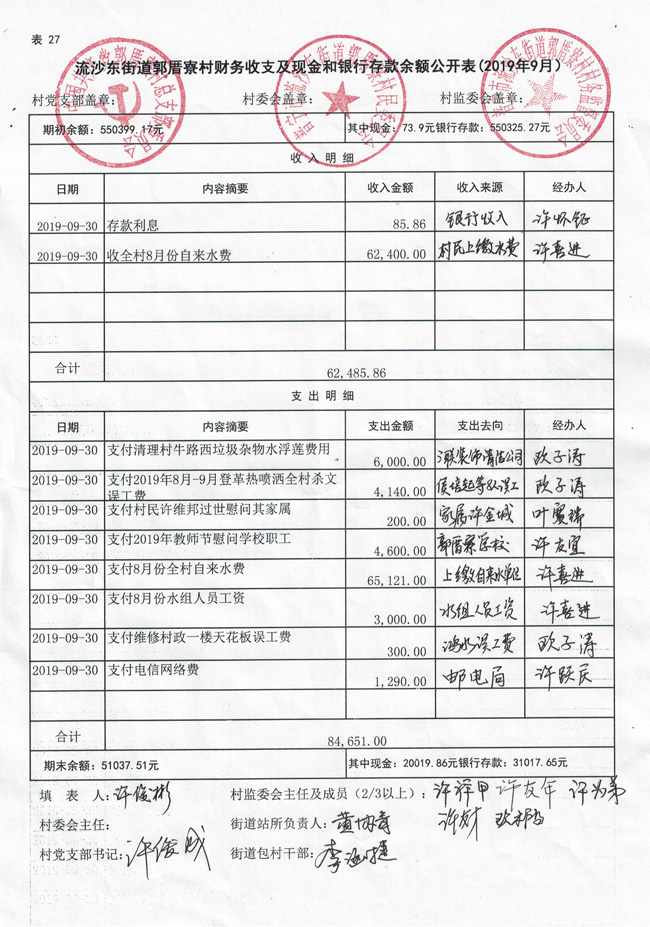 表 27
流沙东街道郭厝寮村财务收支及现金和银行存款余额公开表(2019年9月)
村党支部盖章: 村委会盖章: 村监委会盖章:
期初余额: 550399.17元 其中现金: 73.9元银行存款: 550325.27元
收 入 明 细
日期 内容摘要 收入金额 收入来源 经办人
2019-09-30 存款利息 85.86 银行收入 许怀钲
2019-09-30 收全村8月份自来水费 62,400.00 村民上缴水费 许喜进
合计 62,485.86
支 出 明 细
日期 内容摘要 支出金额 支出去向 经办人
2019-09-30 支付清理村牛路西垃圾杂物水浮莲费用 6,000.00 清洁公司 欧子涛
2019-09-30 支付2019年8月-9月登革热喷洒全村杀文误工费 4,140.00 误工 欧子涛
2019-09-30 支付村民许维邦过世慰问其家属 200.00 家属许金城 叶贤瑞
2019-09-30 支付2019年教师节慰问学校职工 4,600.00 郭厝寮学校 许友宜
2019-09-30 支付8月份全村自来水费 65,121.00 上缴自来水单位 许喜进
2019-09-30 支付8月份水组人员工资 3,000.00 水组人员工资 许喜进
2019-09-30 支付维修村政一楼天花板误工费 300.00 误工费 欧子涛
2019-09-30 支付电信网络费 1,290.00 邮电局 许跃庆
合计 84,651.00
期末余额: 51037.51元 其中现金: 20019.86元银行存款: 31017.65元
填 表 人: 许俊彬 村监委会主任及成员(2/3以上): 许泽甲 许友年
村委会主任: 街道站所负责人:
村党支部书记: 许俊成 街道包村干部: